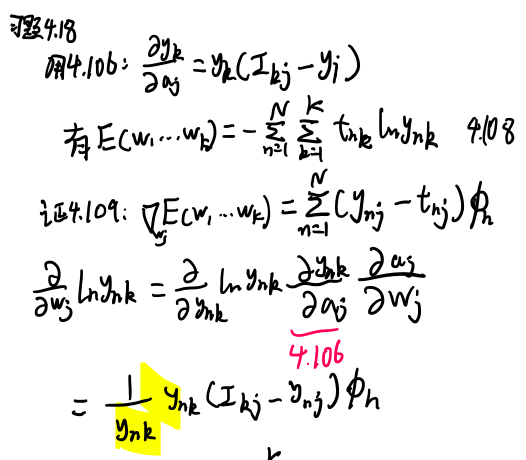 习题4.18
用4.106: ∂yₖ/∂aⱼ = yₖ(Iₖⱼ − yⱼ)
有 E(w₁...wₖ) = −∑ₙ₌₁ᴺ ∑ₖ₌₁ᴷ tₙₖ ln yₙₖ 4.108
证4.109: ∇wⱼ E(w₁...wₖ) = ∑ₙ₌₁ᴺ (yₙⱼ − tₙⱼ) ϕₙ
∂/∂wⱼ ln yₙₖ = ∂/∂yₙₖ ln yₙₖ ∂yₙₖ/∂aⱼ ∂aⱼ/∂wⱼ
4.106
= 1/yₙₖ yₙₖ (Iₖⱼ − yₙⱼ) ϕₙ